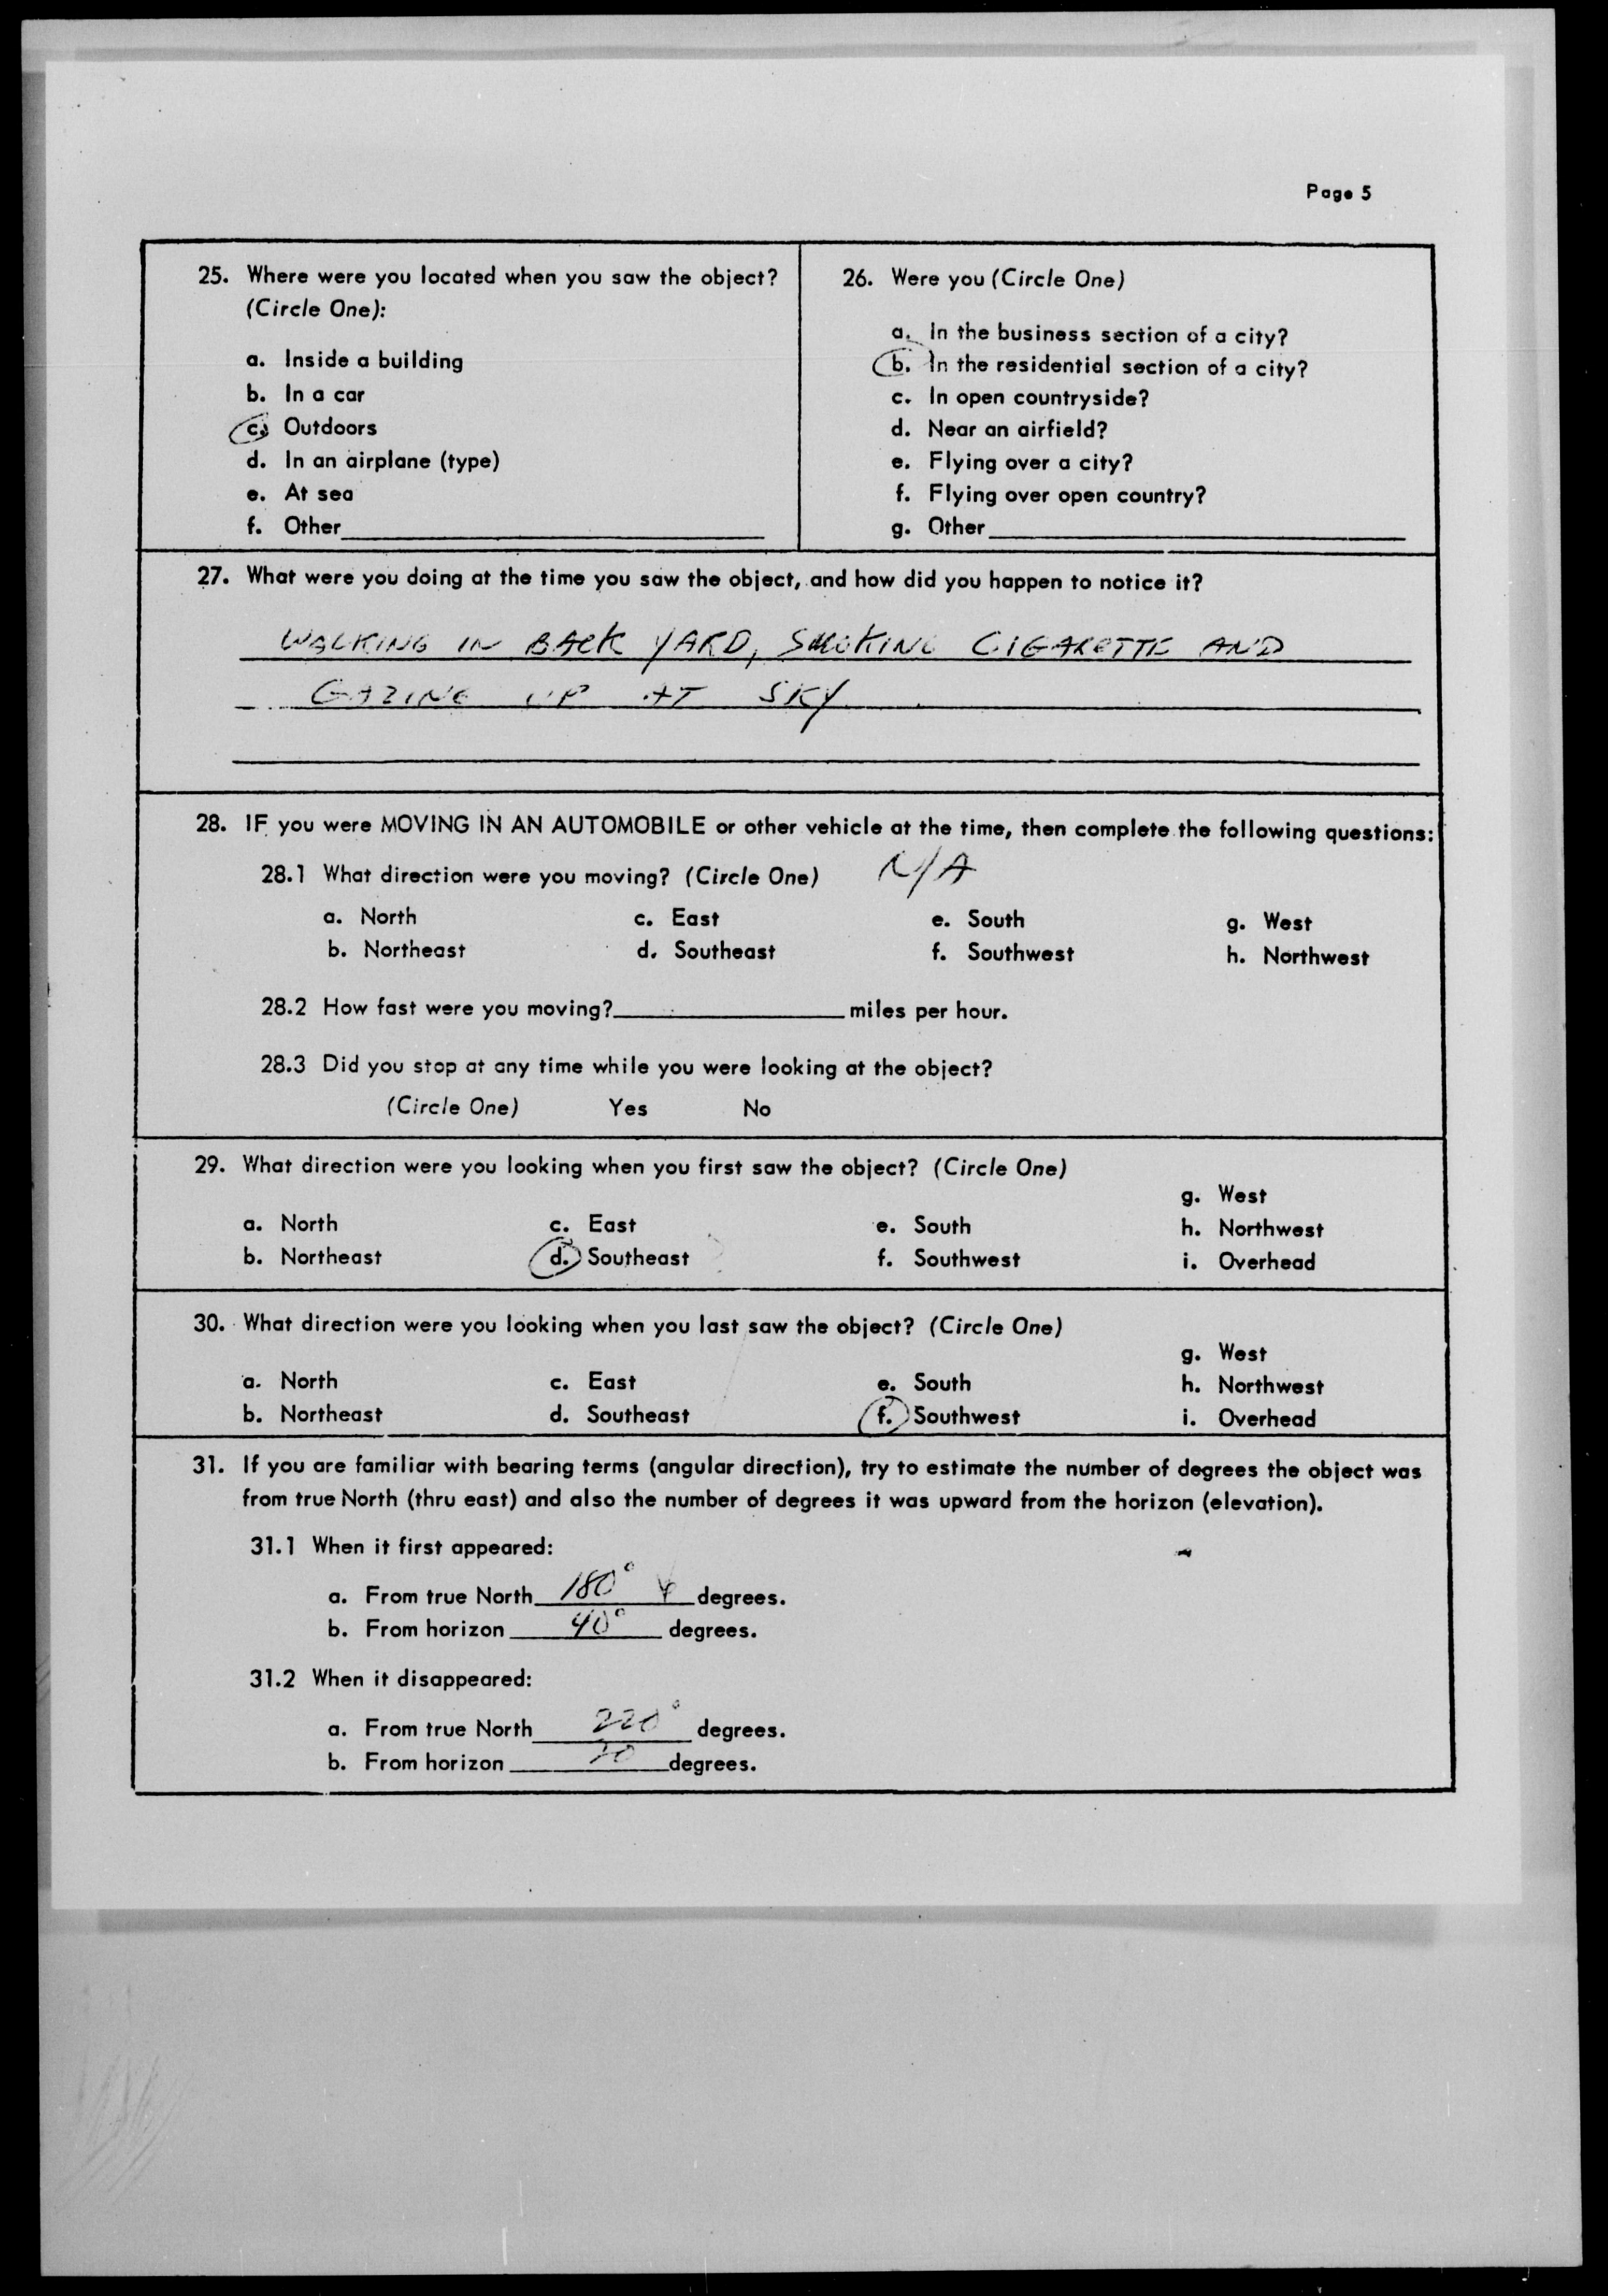 Page 5
25. Where were you located when you saw the object?
(Circle One):
a. Inside a building
b. In a car
c. Outdoors
d. In an airplane (type)
e. At sea
f. Other
26. Were you (Circle One)
a. In the business section of a city?
b. In the residential section of a city?
c. In open countryside?
d. Near an airfield?
e. Flying over a city?
f. Flying over open country?
g. Other
27. What were you doing at the time you saw the object, and how did you happen to notice it?
WALKING IN BACK YARD, SMOKING CIGARETTE AND
GAZING UP AT SKY
28. IF you were MOVING IN AN AUTOMOBILE or other vehicle at the time, then complete the following questions:
28.1 What direction were you moving? (Circle One) N/A
a. North c. East e. South g. West
b. Northeast d. Southeast f. Southwest h. Northwest
28.2 How fast were you moving? miles per hour.
28.3 Did you stop at any time while you were looking at the object?
(Circle One) Yes No
29. What direction were you looking when you first saw the object? (Circle One)
g. West
a. North c. East e. South h. Northwest
b. Northeast d. Southeast f. Southwest i. Overhead
30. What direction were you looking when you last saw the object? (Circle One)
g. West
a. North c. East e. South h. Northwest
b. Northeast d. Southeast f. Southwest i. Overhead
31. If you are familiar with bearing terms (angular direction), try to estimate the number of degrees the object was
from true North (thru east) and also the number of degrees it was upward from the horizon (elevation).
31.1 When it first appeared:
a. From true North 180° degrees.
b. From horizon 40° degrees.
31.2 When it disappeared:
a. From true North 220° degrees.
b. From horizon degrees.